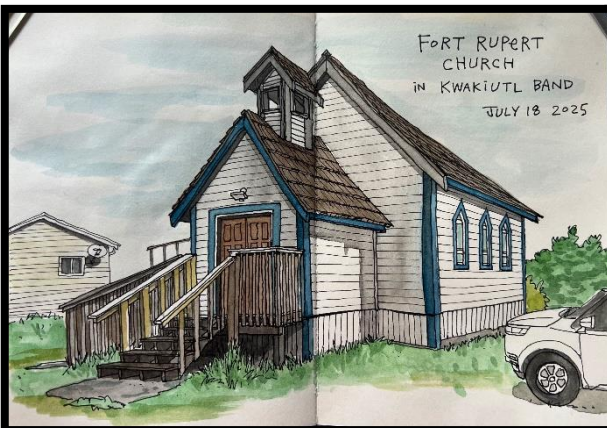 FORT RUPERT
CHURCH
in KWAKIUTL BAND
JULY 18 2025